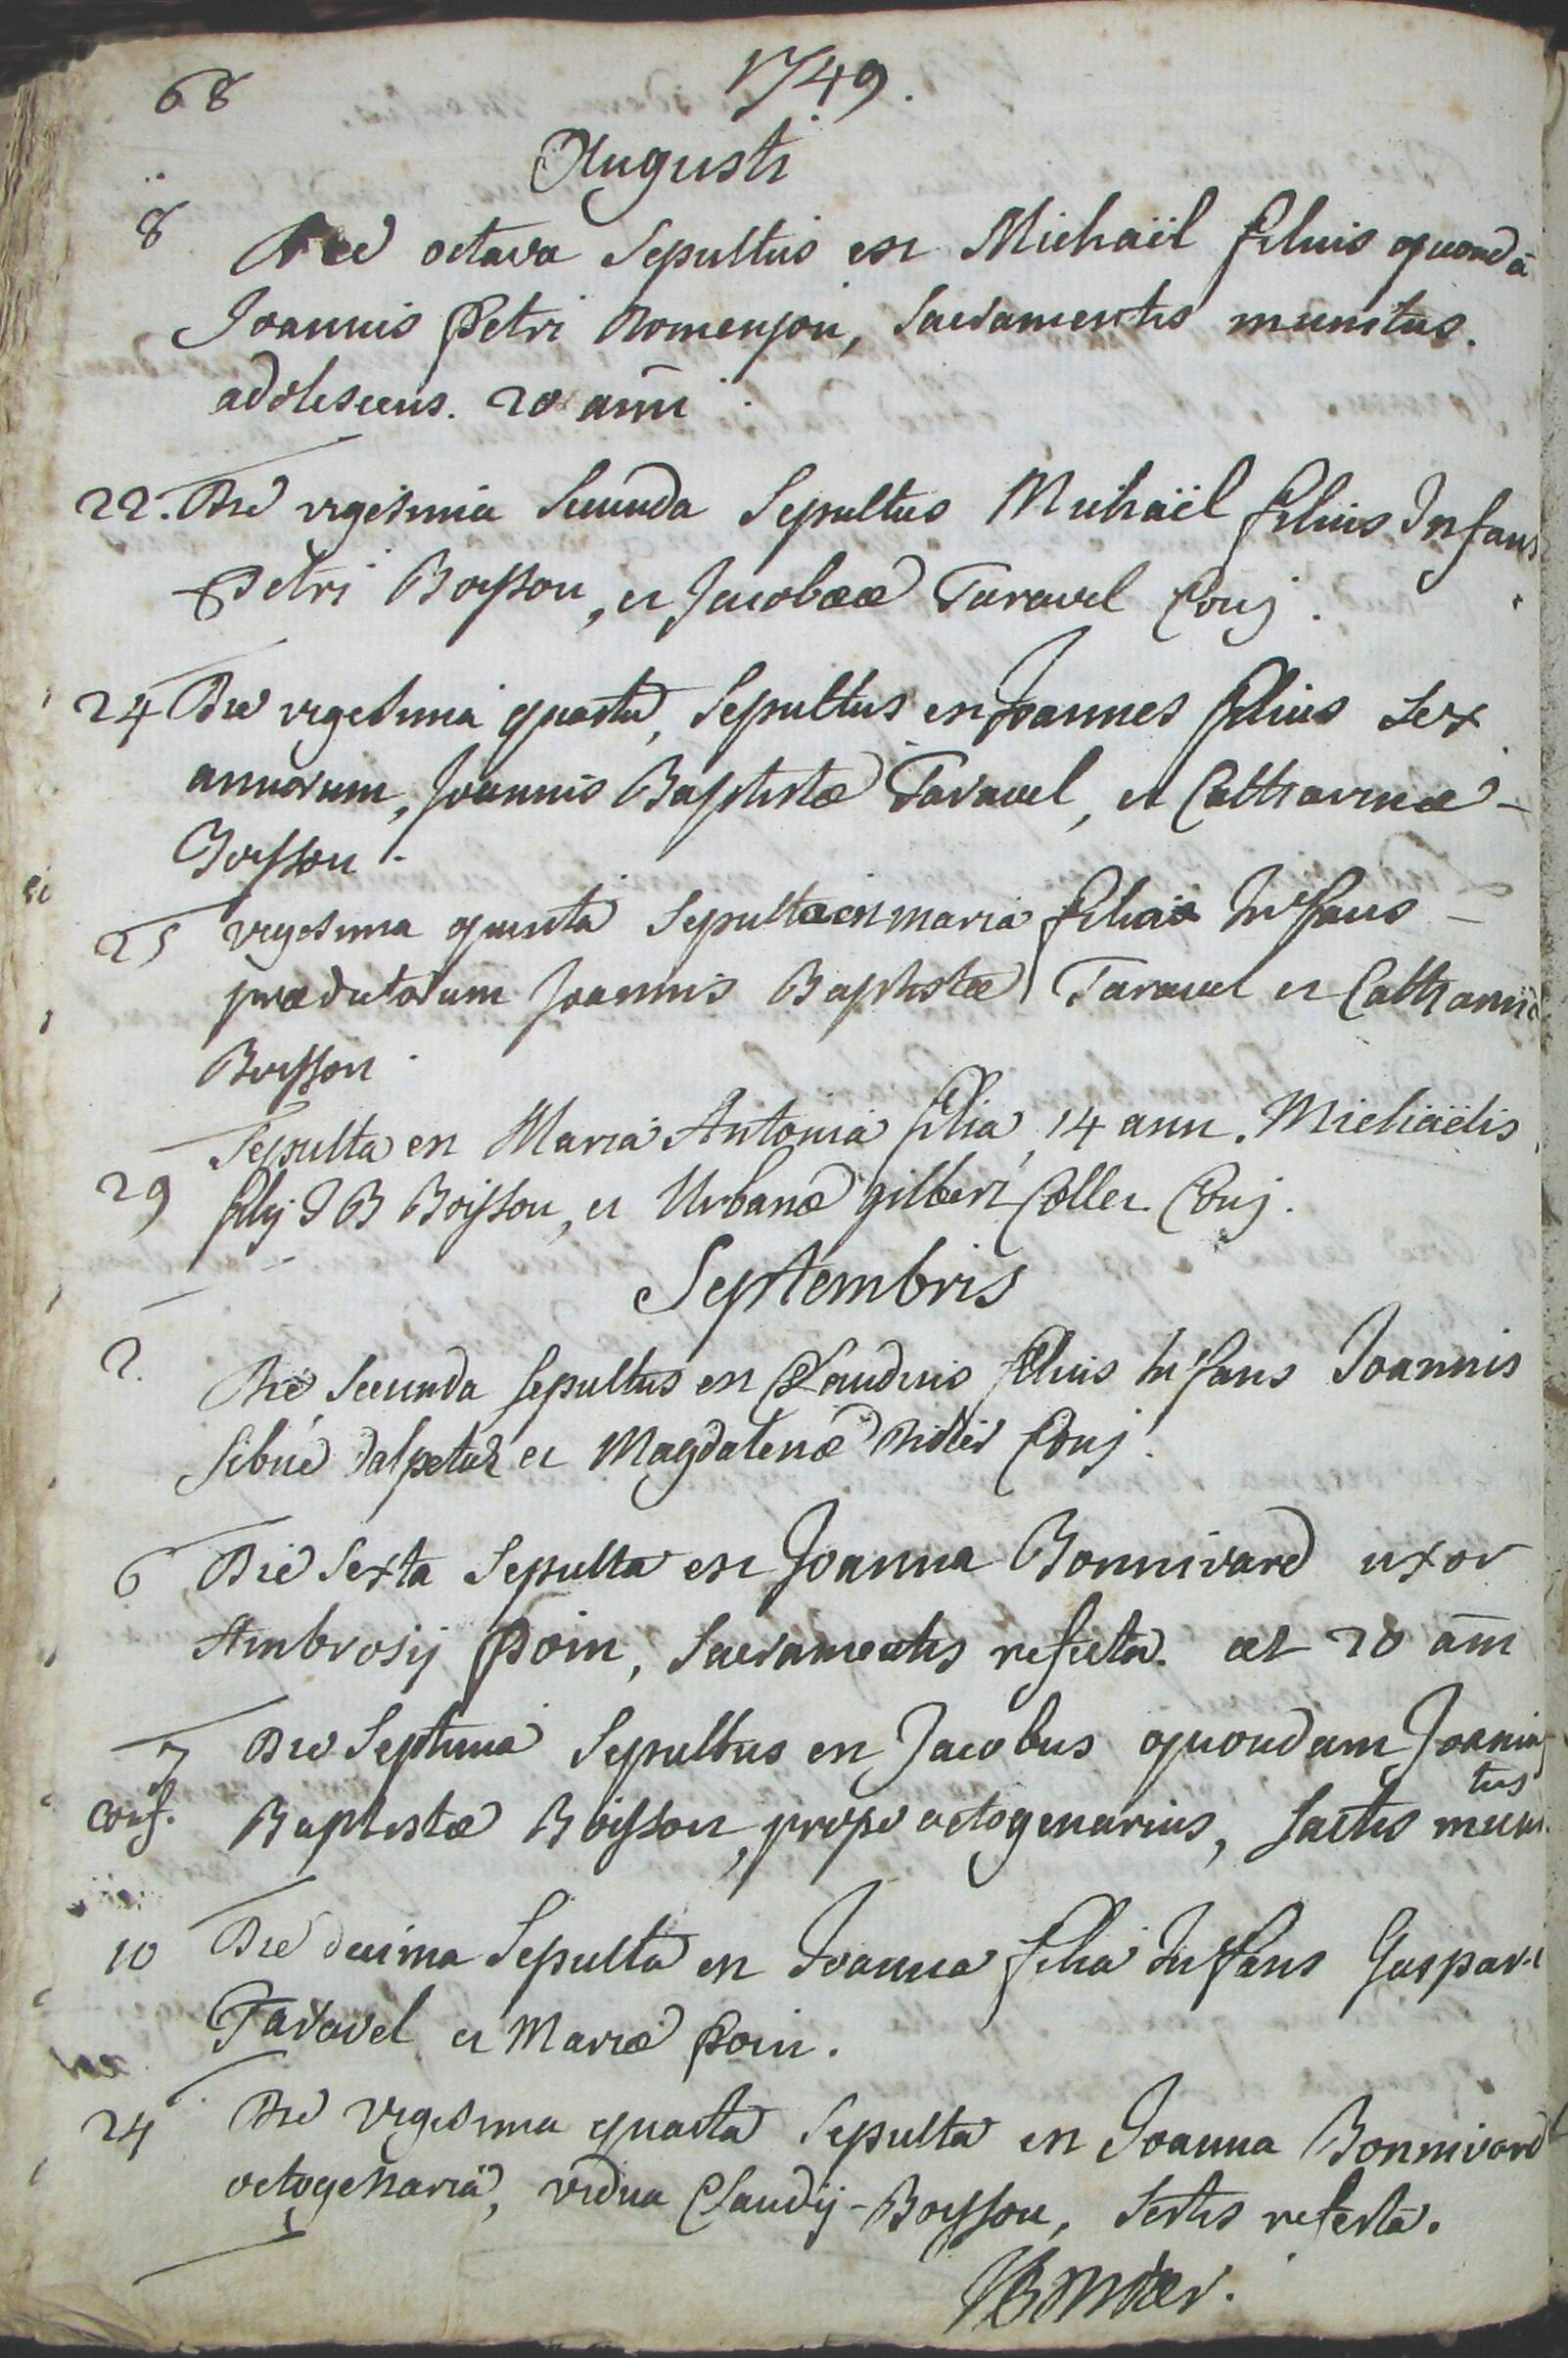 68
1749.
Augusti
8 Die octava Sepultus est Michaël filius quondā
Joannis Petri Romenjon, Sacramentis munitus.
adolescens. 20 ann̄i
22. Die vigesima Secunda Sepultus Michaël filius Infans
Petri Boisson, et Jacobææ Taravel Conj.
24 Die vigesima quarta, Sepultus est Joannes filius Sex
annorum, Joannis Baptistæ Taravel, et Catharinæ -
Boisson.
25 vigesima quinta Sepulta est maria filia Infans -
prædictorum Joannis Baptistæ Taravel et Catharinæ
Boisson.
Sepulta est Maria Antonia filia, 14 ann. Michaëlis
29 filij J B Boisson, et Urbanæ gilbert Collet Conj.
Septembris
2. Die Secunda Sepultus est Claudius filius Infans Joannis
Sibué dalpetaz et Magdalenæ Didier Conj.
6 Die Sexta Sepulta est Joanna Bonnivard uxor
Ambrosij Poin, Sacramentis refecta. æt 20 ān̄
7 Die Septima Sepultus est Jacobus quondam Joannis
tus
conf. Baptistæ Boisson, prope octogenarius, Sactis muni
10 Die decima Sepulta est Joanna filia Infans Gaspari
Taravel et Mariæ Poin.
24 Die vigesima quarta Sepulta est Joanna Bonnivard
octogenaria, vidua Claudij-Boisson, Sctis refecta.